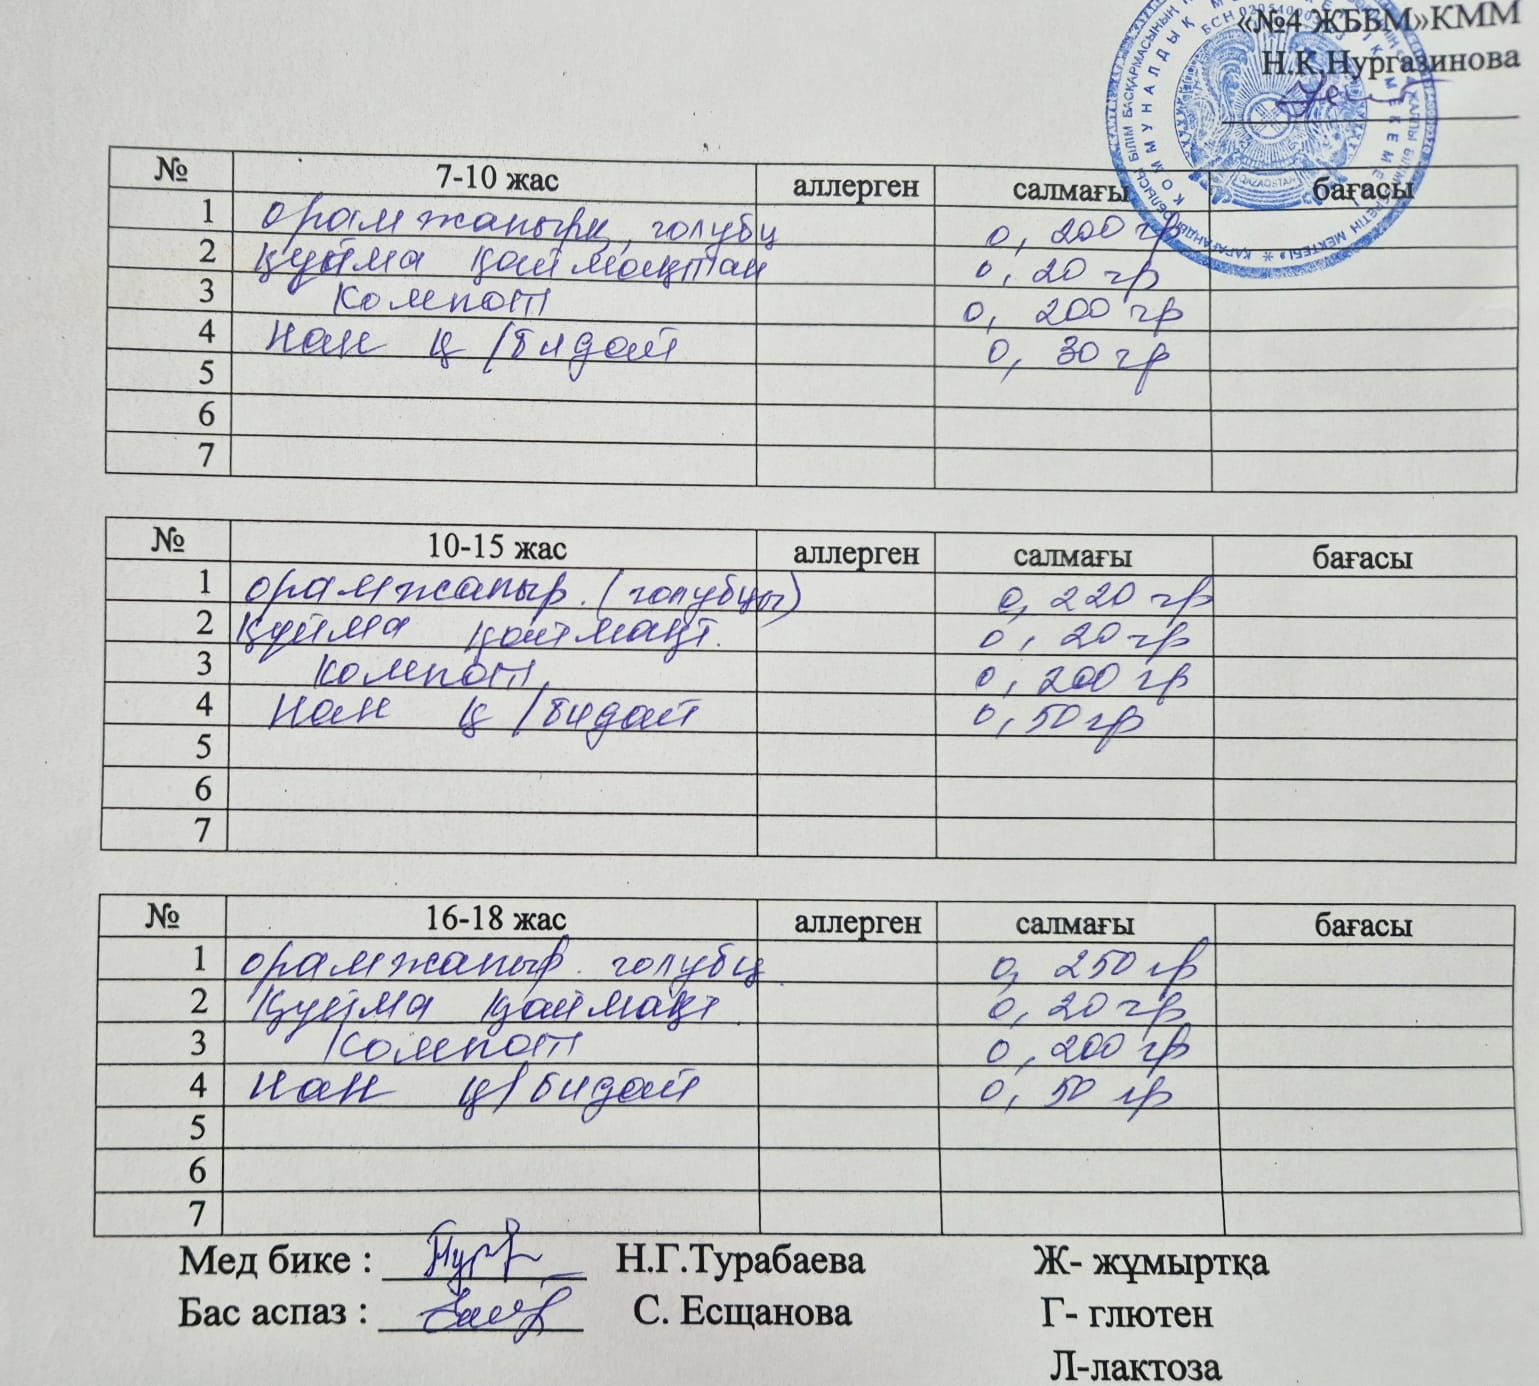 «№4 ЖББМ»КММ
Н.К.Нургазинова
№ 7-10 жас аллерген салмағы бағасы
1 орамжапырқ, голубц 0, 200 гр
2 құйма қаймақтан 0, 20 гр
3 компот 0, 200 гр
4 нан қ/бидай 0, 30 гр
5
6
7
№ 10-15 жас аллерген салмағы бағасы
1 орамжапыр. (голубцы) 0, 220 гр
2 құйма қаймақт. 0, 20 гр
3 компот, 0, 200 гр
4 нан қ/бидай 0, 50 гр
5
6
7
№ 16-18 жас аллерген салмағы бағасы
1 орамжапыр. голубц. 0, 250 гр
2 құйма қаймақт. 0, 20 гр
3 компот 0, 200 гр
4 нан қ/бидай 0, 50 гр
5
6
7
Мед бике : Н.Г.Турабаева Ж- жұмыртқа
Бас аспаз : С. Есщанова Г- глютен
Л-лактоза